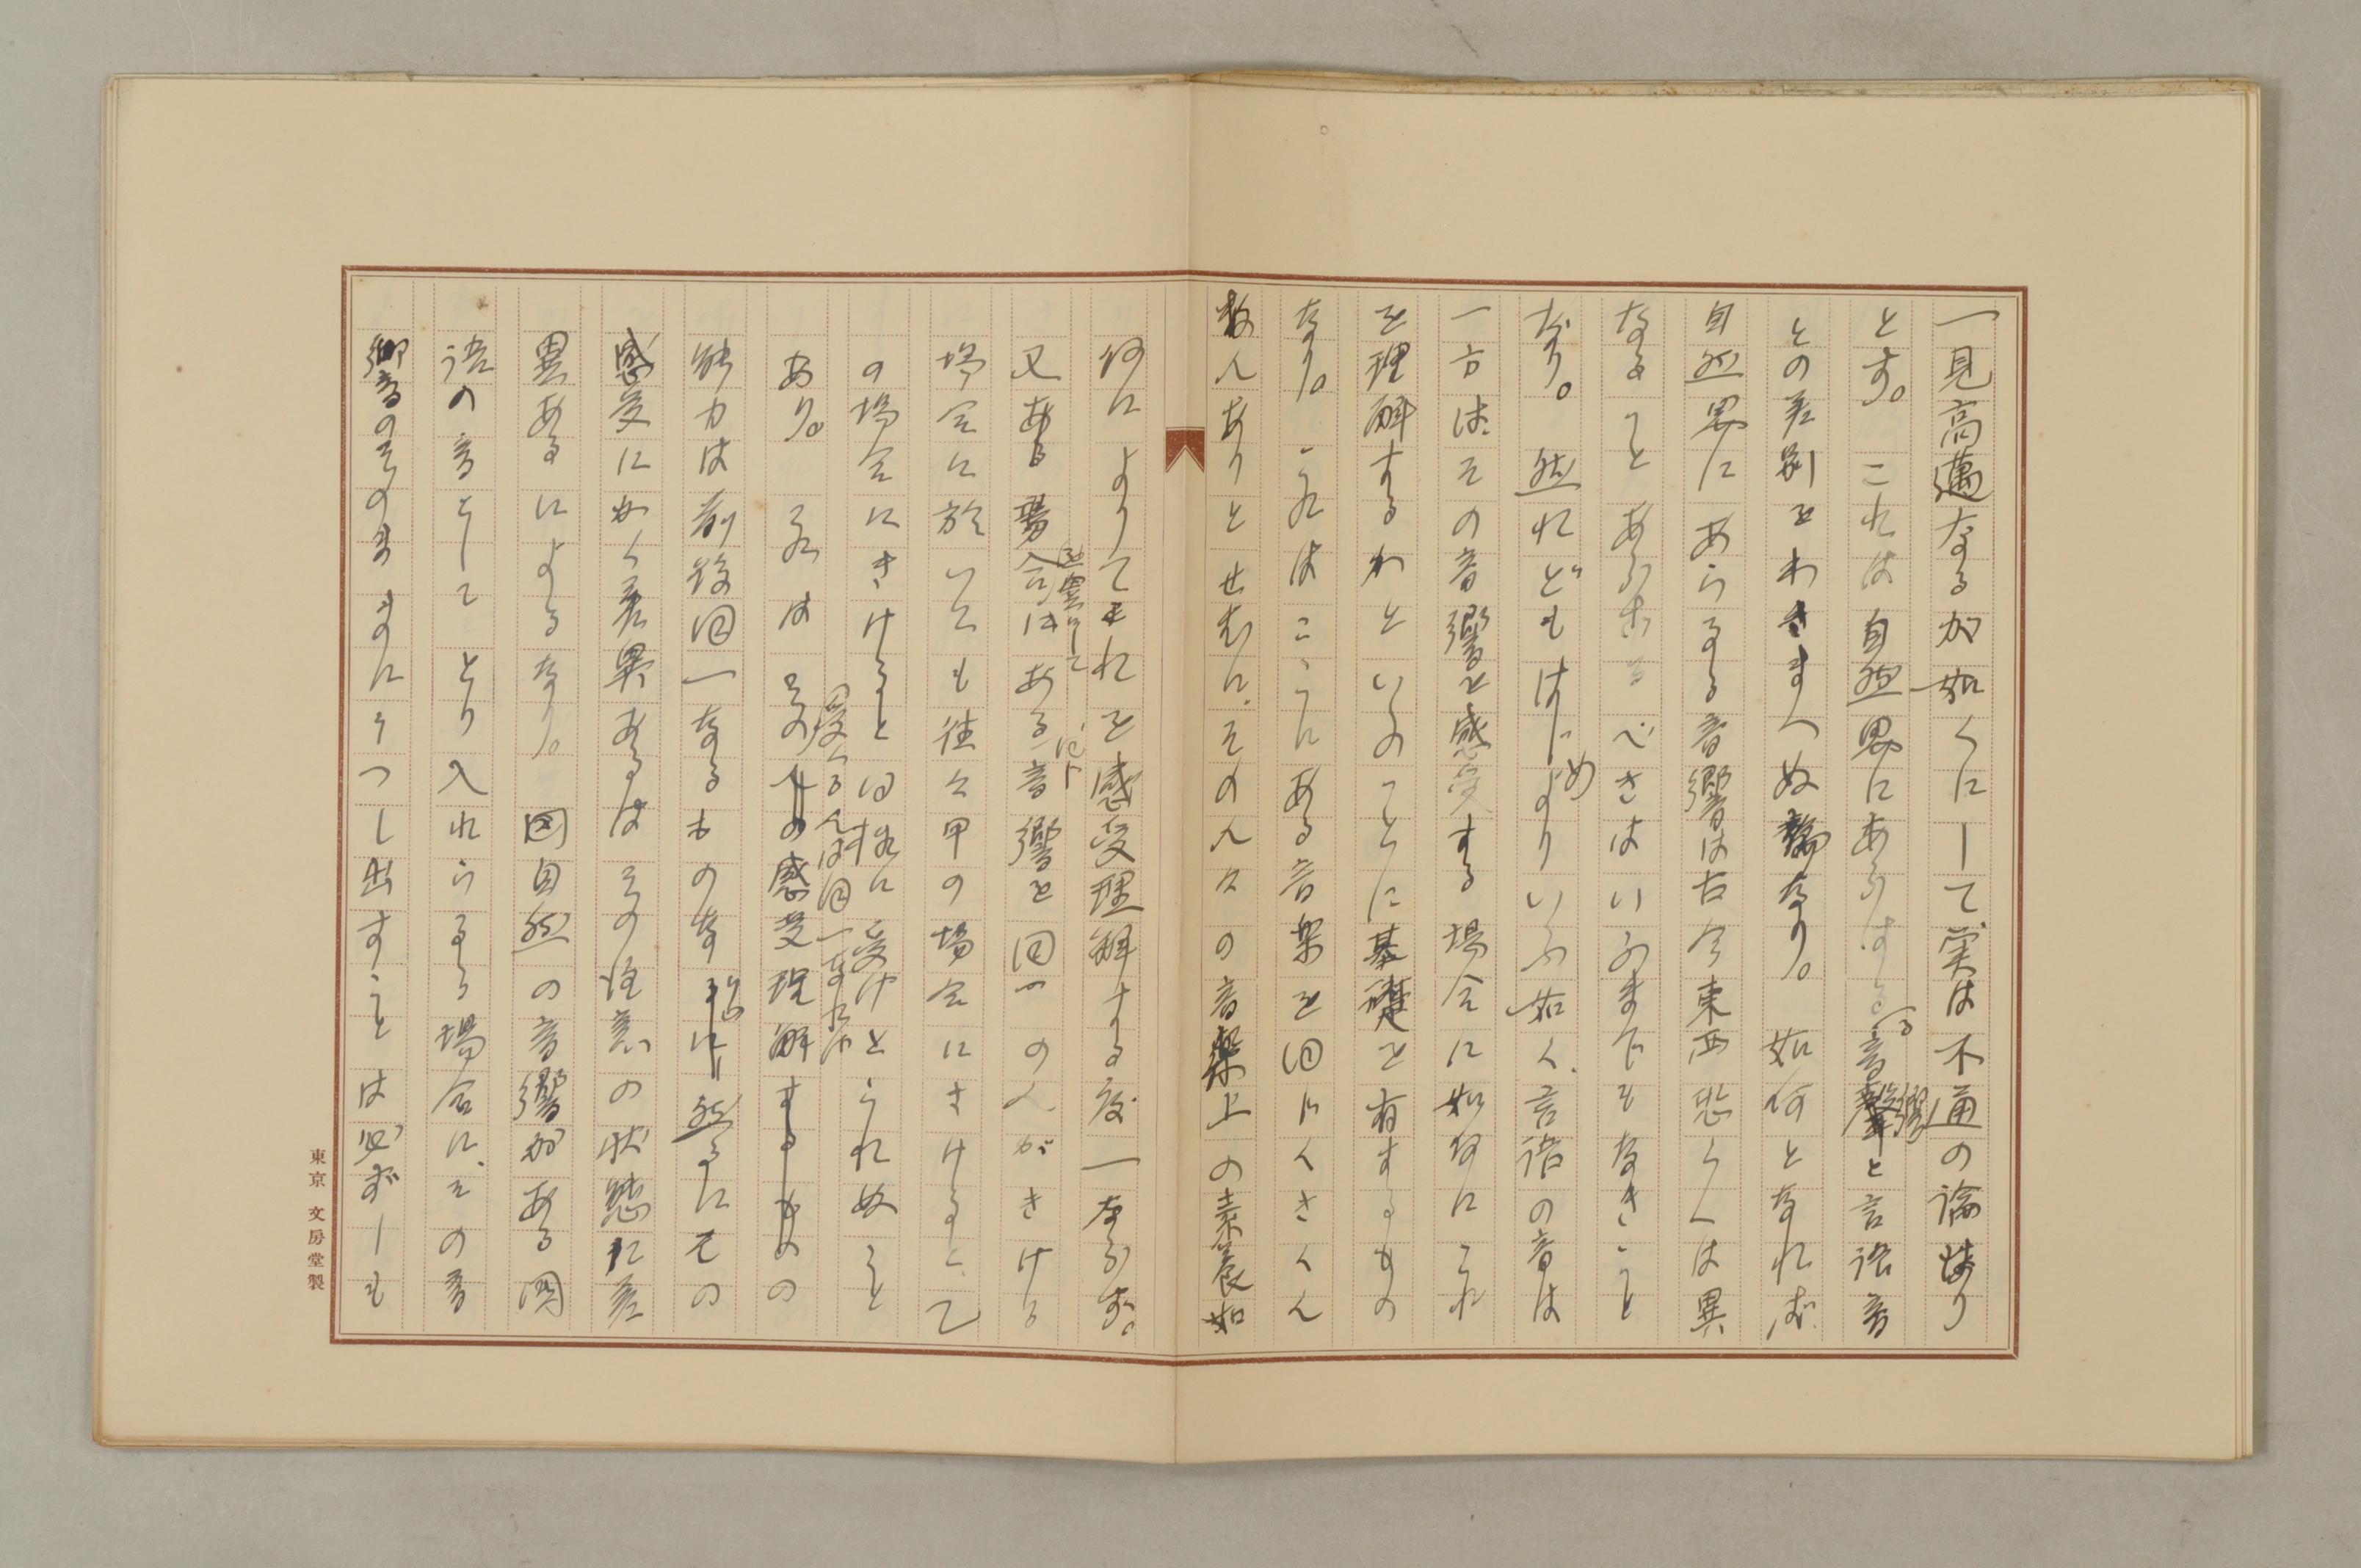 一見高邁なるが如くにして、実は不通の論なり
とす。これは自然界にあらはるる音響と言語音
との差別をわきまへぬ論なり。如何となれば、
自然界にあらはるる音響は古今東西悉くは異
なることあらざるべきはいふまでもなきこと
なり。然れどもはじめよりいふ如く、言語の音は
一方はその音響を感受する場合に如何にこれ
を理解するかといふことに基礎を有するもの
なり。これはここにある音楽を同じくきく人
数人ありとせむに、その人々の音樂上の素養如
何によりてそれを感受理解する度一ならず。
又ある場合はある音響を同一の人がきける
場合に於いても往々甲の場合にきけると、乙
の場合にきけると同様に受けとられぬこと
あり。これは
能力は前後同一なるものなり 然るにその
感受にかく差異あるはその注意の状態に差
異あるによるなり。同自然の音響がある國
語の音としてとり入れらるる場合に、その音
響音のそのままにうつし出すことは必ずしも
東京 文房堂製